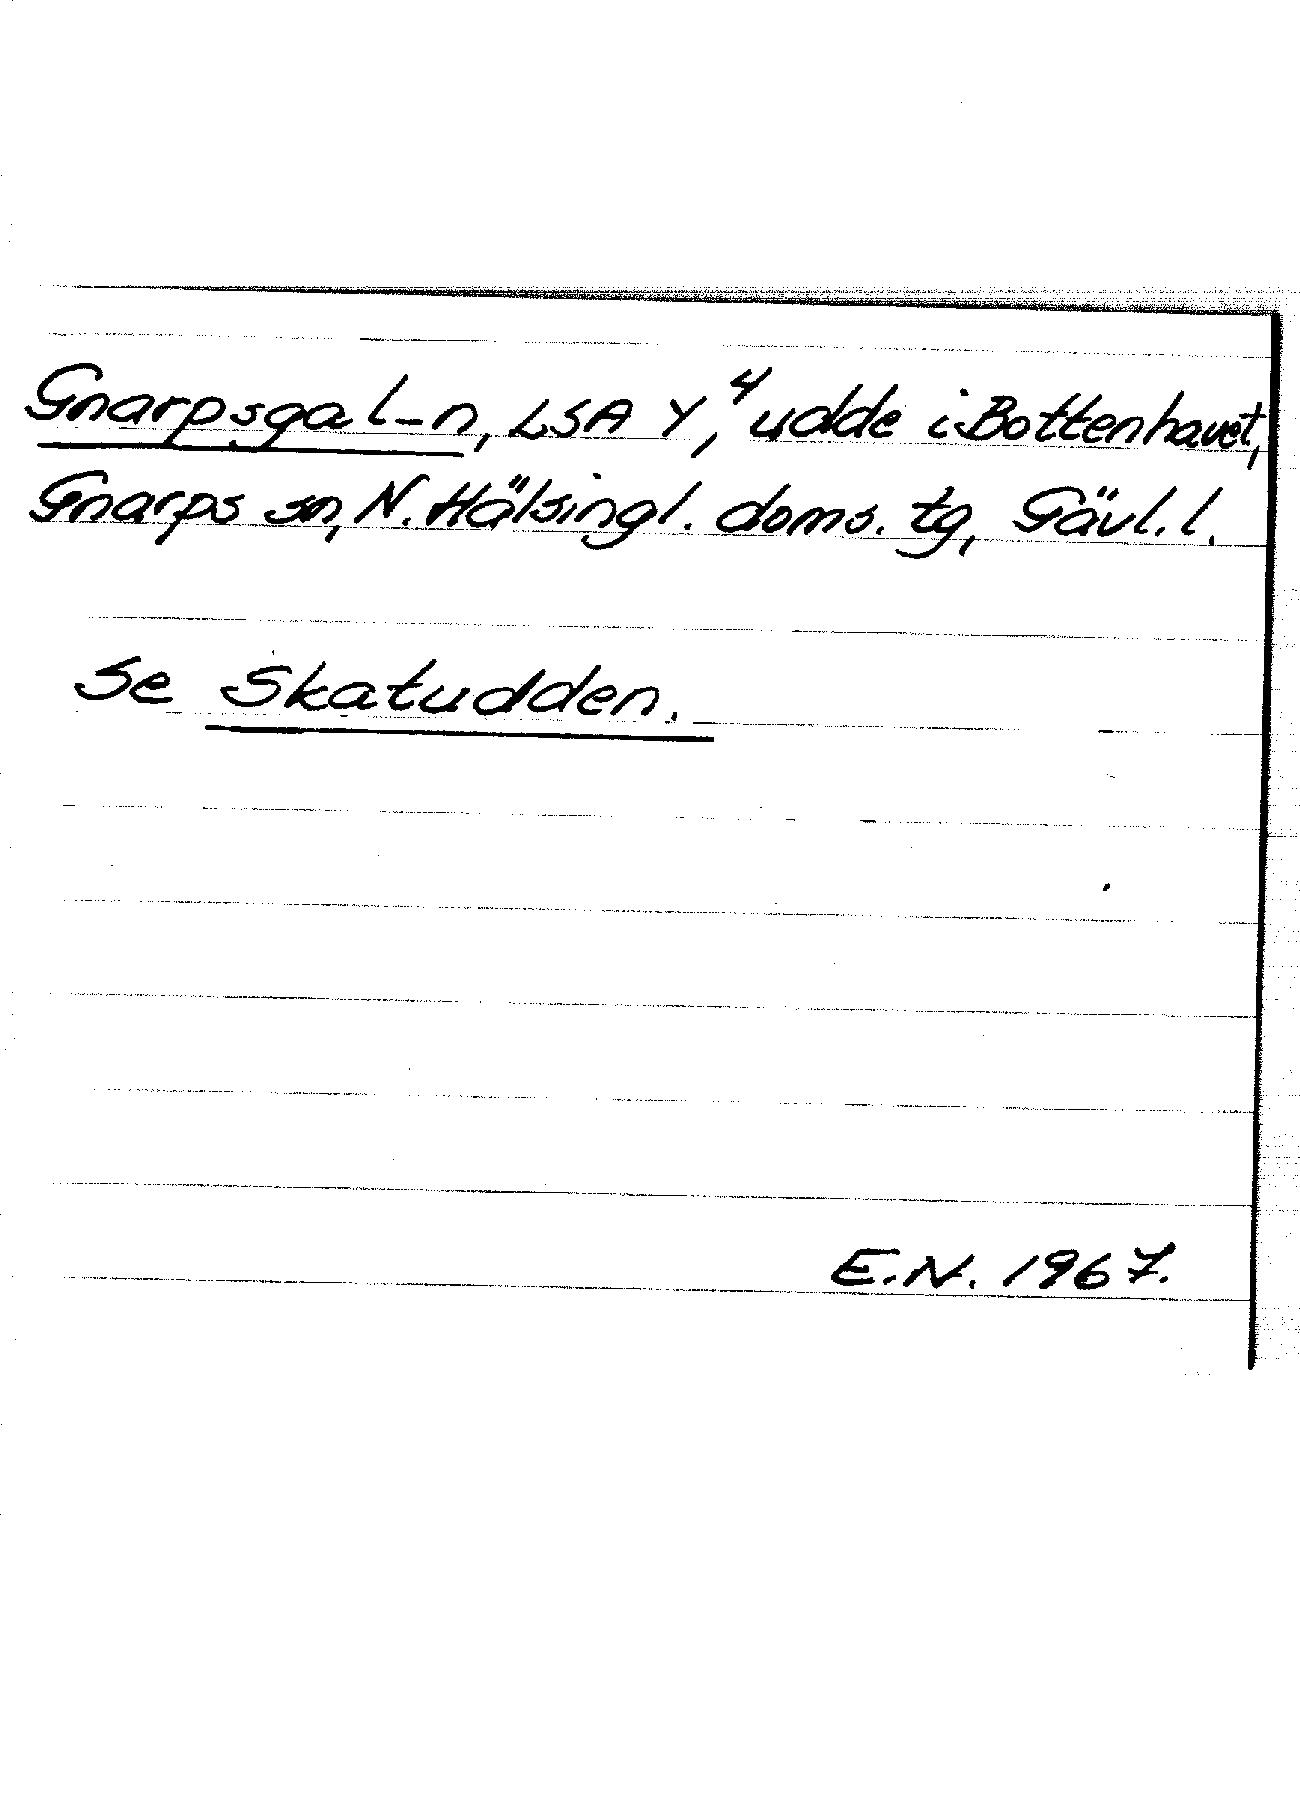 Gnarpsgal-n, LSA Y,⁴ udde i Bottenhavet,
Gnarps sn, N. Hälsingl. doms. tg, Gävl. l.
Se Skatudden.
E.N. 1967.